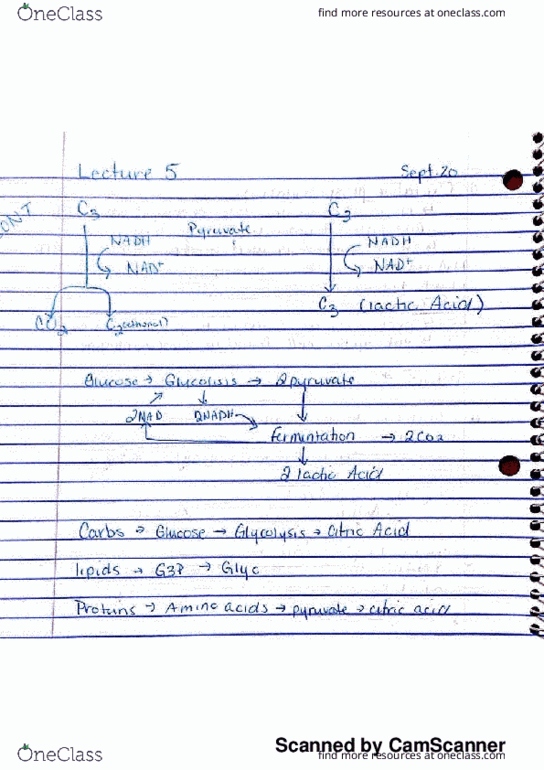 OneClass find more resources at oneclass.com
Lecture 5 Sept. 20
CONT
C3 C3
NADH Pyruvate NADH
NAD+ NAD+
CO2 C2 (ethanol) C3 (lactic Acid)
Glucose → Glycolisis → 2pyruvate
2NAD 2NADH
fermintation → 2CO2
2 lactic Acid
Carbs → Glucose → Glycolysis → Citric Acid
lipids → G3P → Glyc
Proteins → Amino acids → pyruvate → citric acid
Scanned by CamScanner
OneClass find more resources at oneclass.com